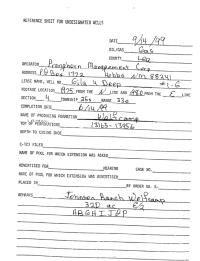 REFERENCE SHEET FOR UNDESIGNATED WELLS
DATE 9/14/99
OIL/GAS Gas
COUNTY Lea
OPERATOR Pronghorn Management Corp
ADDRESS PO Box 1772 Hobbs NM 88241
LEASE NAME, WELL NO. Gila 4 Deep #1-G
FOOTAGE LOCATION, 1975 FROM THE N LINE AND 1980 FROM THE E LINE
SECTION 4 TOWNSHIP 25s RANGE 33e
COMPLETION DATE 6/14/99
NAME OF PRODUCING FORMATION Wolfcamp
TOP OF PERFORATIONS 13163-13956
DEPTH TO CASING SHOE
C-123 FILED
NAME OF POOL FOR WHICH EXTENSION WAS ASKED
ADVERTISED FOR HEARING CASE NO.
NAME OF POOL FOR WHICH EXTENSION WAS ADVERTISED
PLACED IN BY ORDER NO. R-
REMARKS Johnson Ranch Wolfcamp
320 ac E/2
ABGHIJOP